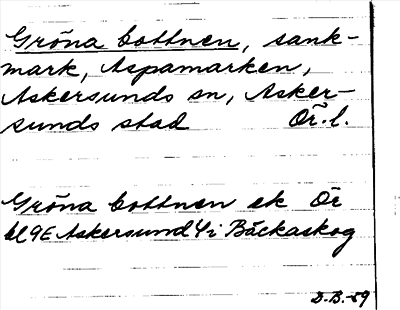 Gröna bottnen, sank-
mark, Aspamarken,
Askersunds sn, Asker-
sunds stad Ör. l.
Gröna bottnen ek Ör
bl 9E Askersund 4i Bäckaskog
D.B.-59